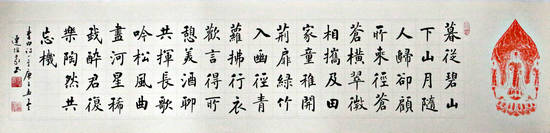 暮從碧山
下山月隨
人歸卻顧
所來徑蒼
蒼橫翠微
相攜及田
家童稚開
荊扉綠竹
入幽徑青
蘿拂行衣
歡言得所
憩美酒聊
共揮長歌
吟松風曲
盡河星稀
我醉君復
樂陶然共
忘機